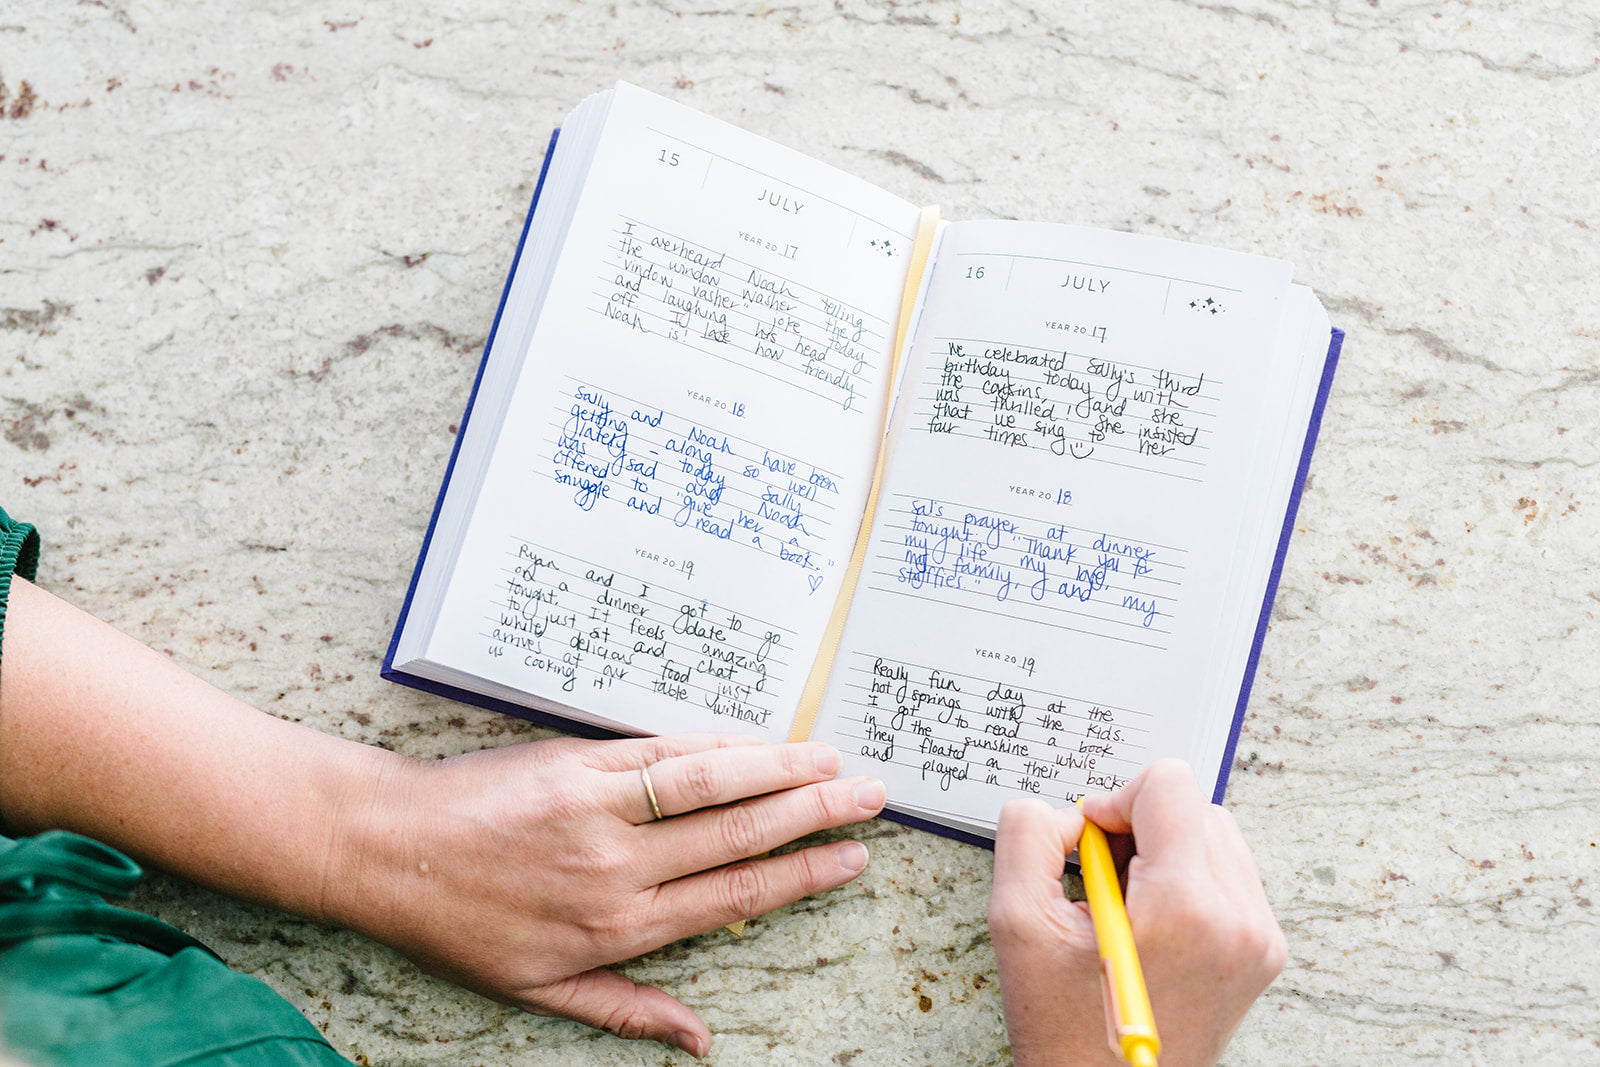 15
JULY
YEAR 2017
I overheard Noah telling
the window washer the
"vindow vasher" joke today
and laughing his head
off. I love how friendly
Noah is!
YEAR 2018
Sally and Noah have been
getting along so well
lately - today Sally
was sad and Noah
offered to "give her a
snuggle and read a book."
YEAR 2019
Ryan and I got to go
on a dinner date
tonight. It feels amazing
to just sit and chat
while delicious food just
arrives at our table without
us cooking it!
16
JULY
YEAR 2017
We celebrated Sally's third
birthday today with
the cousins, and she
was thrilled! She insisted
that we sing to her
four times.
YEAR 2018
Sal's prayer at dinner
tonight: "Thank you for
my life, my love,
my family, and my
stuffies."
YEAR 2019
Really fun day at the
hot springs with the kids.
I got to read a book
in the sunshine while
they floated on their backs
and played in the